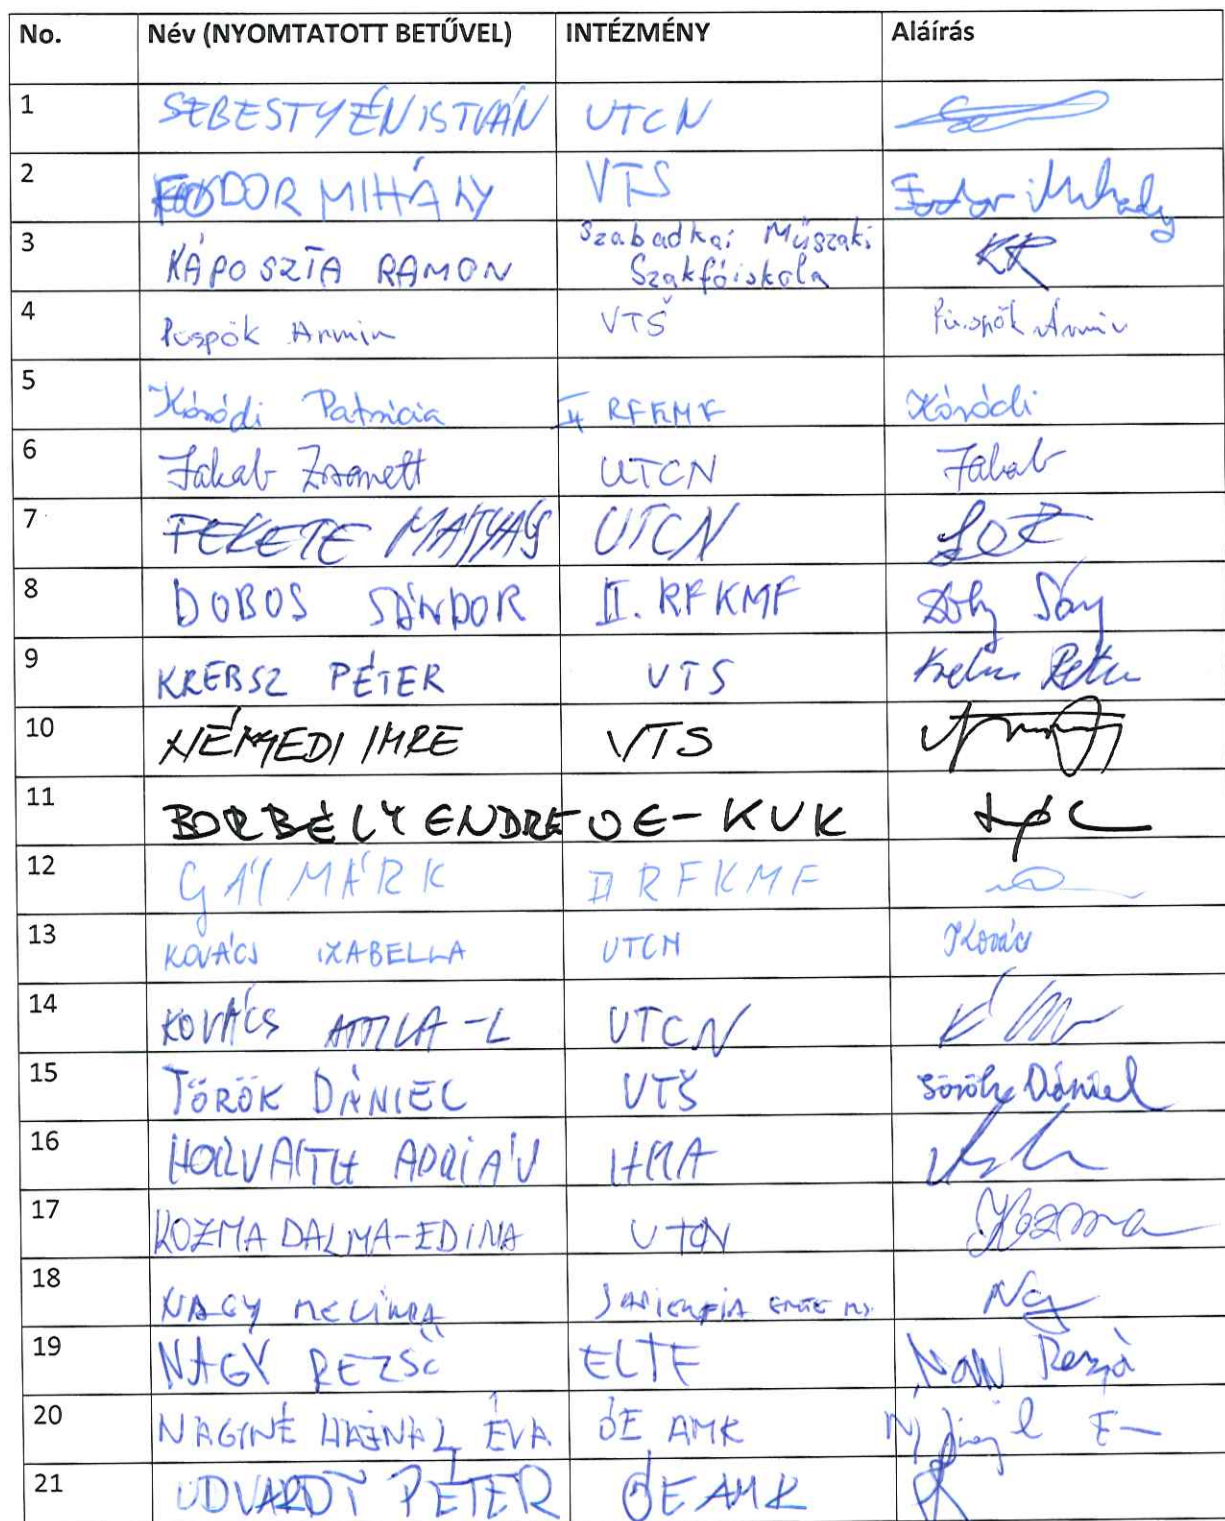 No. Név (NYOMTATOTT BETŰVEL) INTÉZMÉNY Aláírás
1 SEBESTYÉN ISTVÁN UTCN
2 FODOR MIHÁLY VTS Fodor Mihály
3 KÁPOSZTA RAMON Szabadkai Műszaki
Szakfőiskola KR
4 Püspök Armin VTŠ Püspök Ármin
5 Kóródi Patrícia II RFKMF Kóródi
6 Jakab Zsanett UTCN Jakab
7 FEKETE MÁTYÁS UTCN
8 DOBOS SÁNDOR II. RFKMF
9 KREBSZ PÉTER VTS Krebsz Péter
10 NÉMEDI IMRE VTS
11 BORBÉLY ENDRE OE-KVK
12 GÁL MÁRK II RFKMF
13 KOVÁCS IZABELLA UTCN Kovács
14 KOVÁCS ATTILA-L UTCN
15 TÖRÖK DÁNIEL VTŠ Török Dániel
16 HORVÁTH ADRIÁN
17 KOZMA DALMA-EDINA UTCN Kozma
18 NAGY MELINDA SAPIENTIA EMTE
19 NAGY REZSŐ ELTE Nagy Rezső
20 NAGYNÉ HAJNAL ÉVA ÓE AMK
21 UDVARDY PÉTER ÓE AMK